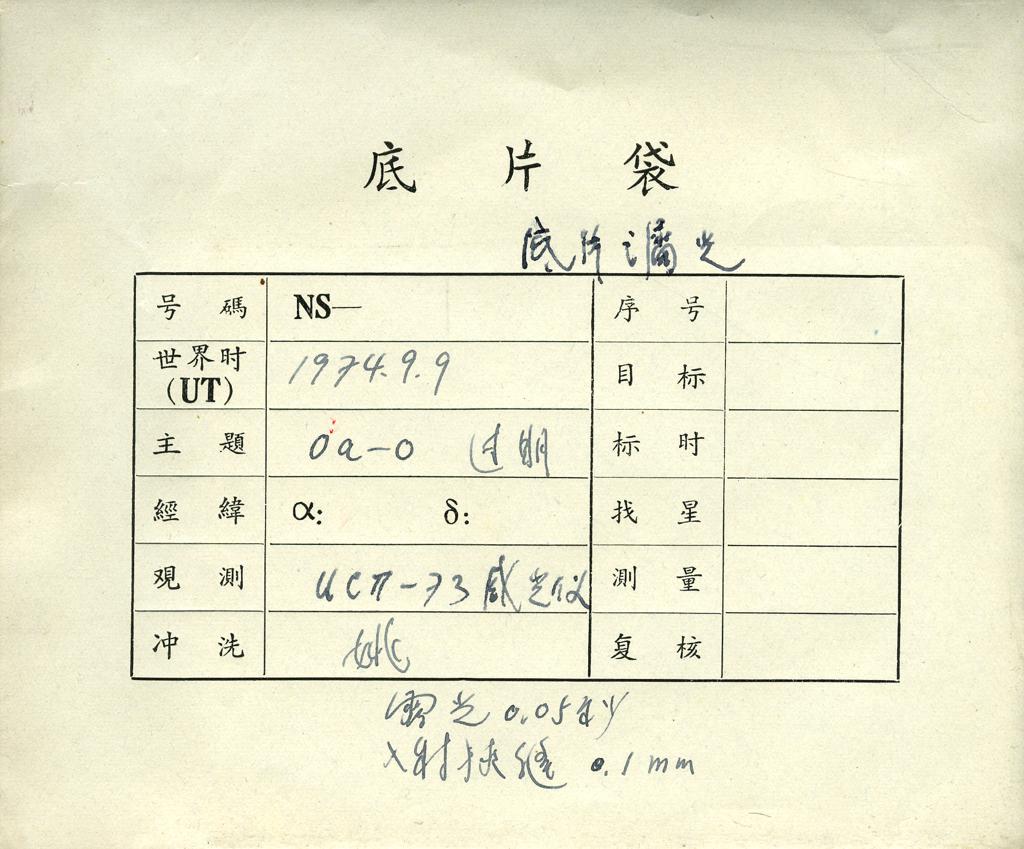 底片袋
底片漏光
号碼 NS— 序号
世界时(UT) 1974.9.9 目标
主題 Oa-O 过期 标时
經緯 α: δ: 找星
观測 UCП-73 感光仪 測量
冲洗 姚 复核
露光 0.05秒
入射狭缝 0.1mm